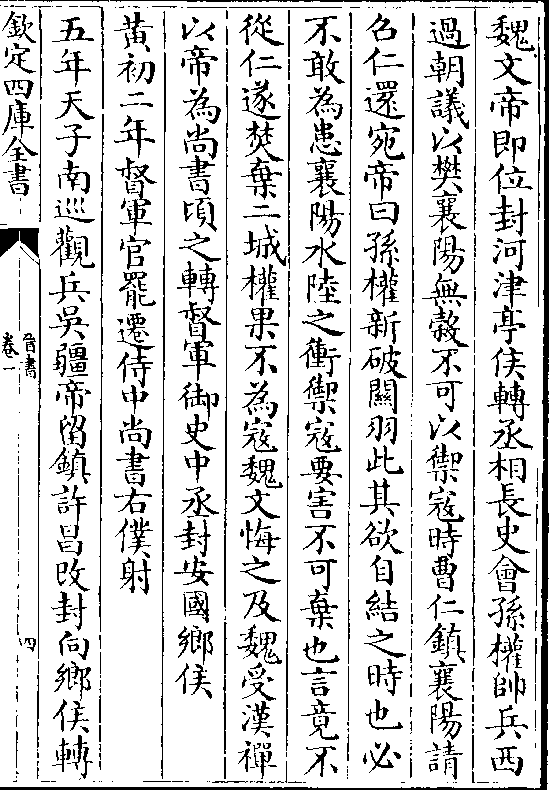 魏文帝即位封河津亭侯轉丞相長史會孫權帥兵西
過朝議以樊襄陽無糓不可以禦寇時曹仁鎮襄陽請
召仁還宛帝曰孫權新破關羽此其欲自結之時也必
不敢為患襄陽水陸之衝禦寇要害不可棄也言竟不
從仁遂焚棄二城權果不為寇魏文悔之及魏受漢禪
以帝為尚書頃之轉督軍御史中丞封安國鄉侯
黄初二年督軍官罷遷侍中尚書右僕射
五年天子南巡觀兵吳疆帝留鎮許昌改封向鄉侯轉
欽定四庫全書
晉書
卷一
四